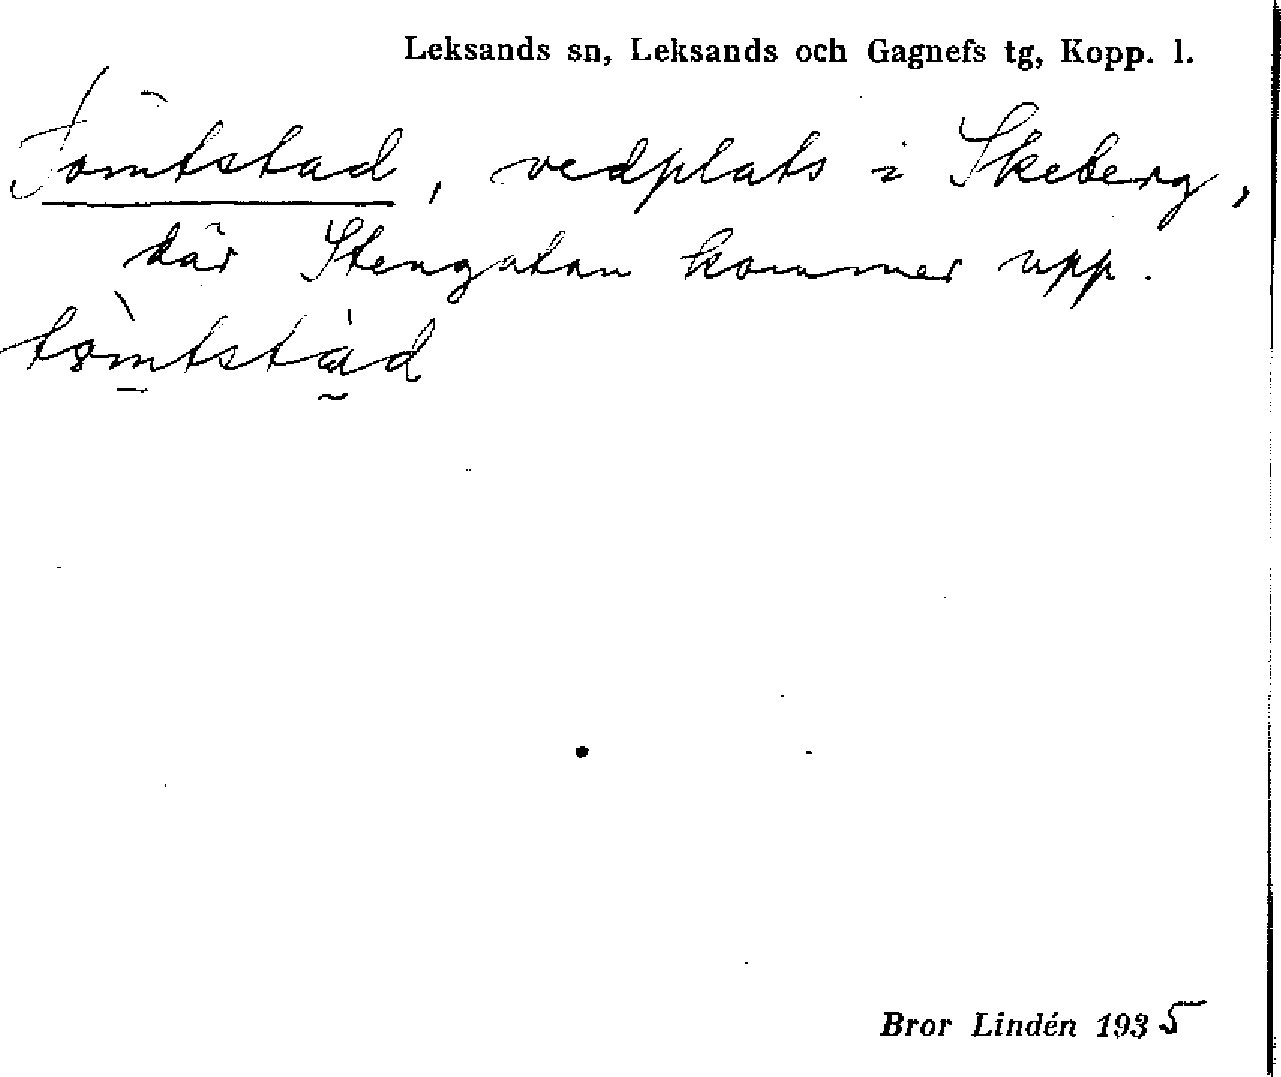 Leksands sn, Leksands och Gagnefs tg, Kopp. l.
Tomtstad, vedplats i Skeberg,
där Stengatan kommer upp.
tòmtstàd
Bror Lindén 1935